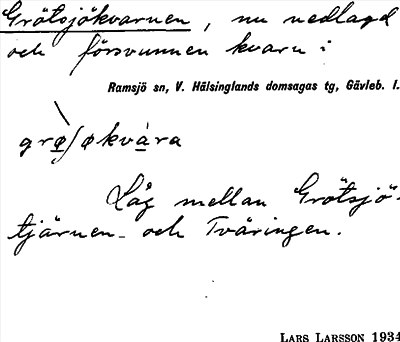 Grötsjökvarnen, nu nedlagd
och försvunnen kvarn i
Ramsjö sn, V. Hälsinglands domsagas tg, Gävleb. l.
grø̀ʃøkvàra
Låg mellan Grötsjö-
tjärnen och Tväringen.
LARS LARSSON 1934